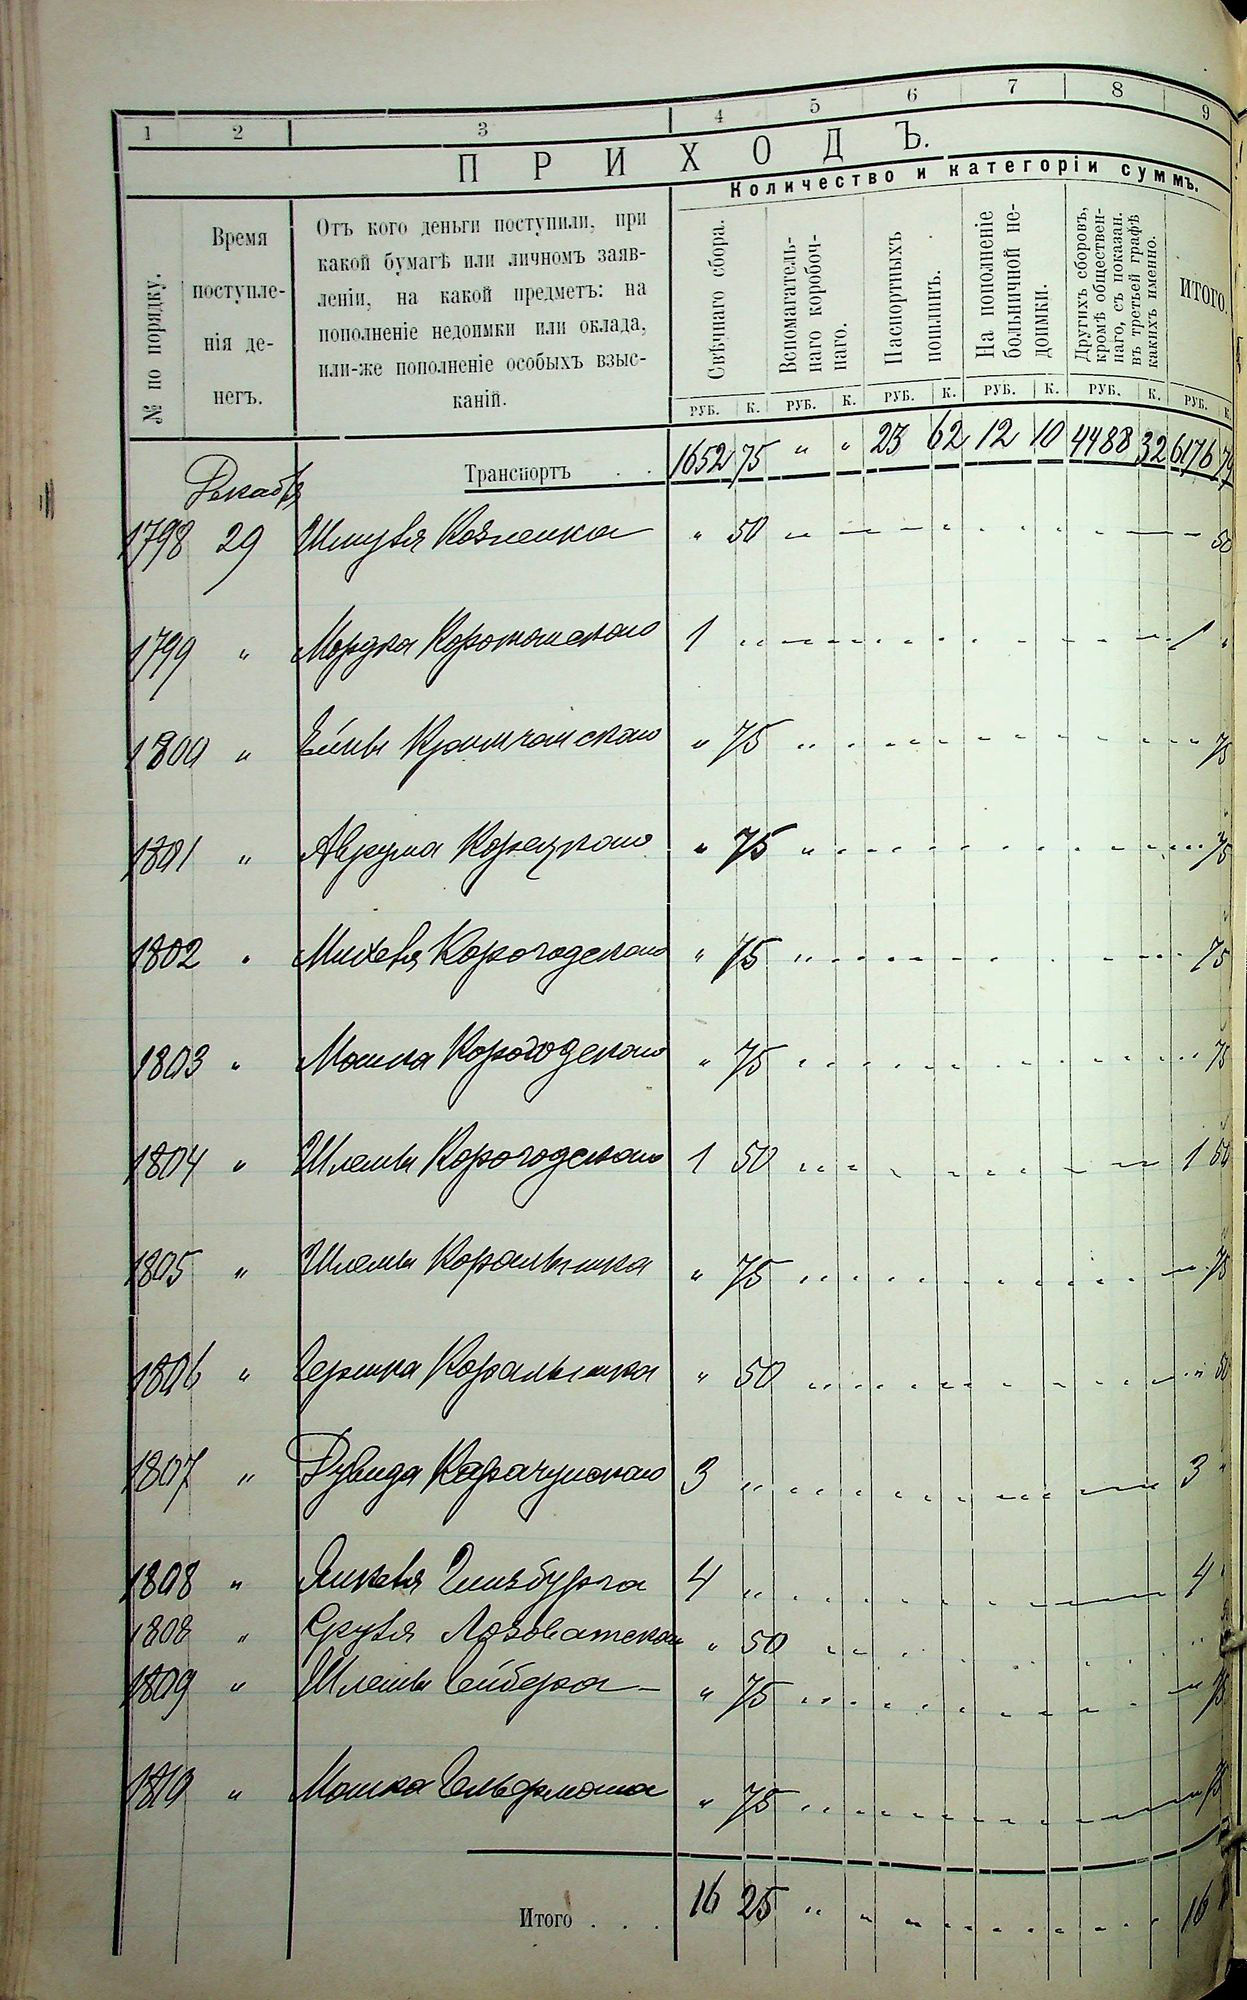 1 2 3 4 5 6 7 8 9
ПРИХОДЪ.
Количество и категоріи суммъ.
№ по порядку.
Время
поступле-
нія де-
негъ.
Отъ кого деньги поступили, при
какой бумагѣ или личномъ заяв-
леніи, на какой предметъ: на
пополненіе недоимки или оклада,
или-же пополненіе особыхъ взыс-
каній.
Свѣчнаго сбора.
Вспомагатель-
наго коробоч-
наго.
Паспортныхъ
пошлинъ.
На пополненіе
больничной не-
доимки.
Другихъ сборовъ,
кромѣ обществен-
наго, съ показан.
въ третьей графѣ
какихъ именно.
ИТОГО.
РУБ. К. РУБ. К. РУБ. К. РУБ. К. РУБ. К. РУБ. К.
Транспортъ . . 1652 75 " " 23 62 12 10 4488 32 6176 79
Декабря
1798 29 Шмуля " 50 50
1799 " Мордка 1 1 "
1800 " " 75 75
1801 " Аврума Корецкаго " 75 75
1802 " Михеля Корогодскаго " 75 75
1803 " Мошка Корогодскаго " 75 75
1804 " Шлемы Корогодскаго 1 50 1 50
1805 " Шлемы Коральника " 75 75
1806 " Гершка Коральника " 50 50
1807 " Дувида Карачунскаго 3 " 3 "
1808 " Янкеля Гинзбурга 4 " 4 "
1808 " Сруля Лозоватскаго " 50
1809 " Шлемы " 75 75
1810 " Мошка Гельфмана " 75 75
Итого . . . 16 25 " 16